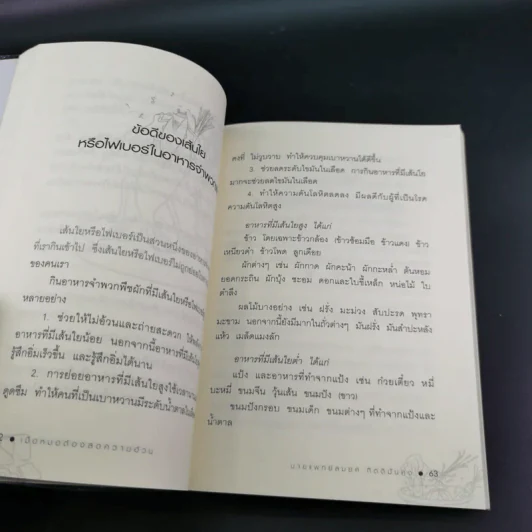 ข้อดีของเส้นใย
หรือไฟเบอร์ในอาหารจำพวก
เส้นใยหรือไฟเบอร์เป็นส่วนหนึ่งของ
ที่เรากินเข้าไป ซึ่งเส้นใยหรือไฟเบอร์ไม่ถูกย่อย
ของคนเรา
กินอาหารจำพวกพืชผักที่มีเส้นใยหรือ
หลายอย่าง
1. ช่วยให้ไม่อ้วนและถ่ายสะดวก
อาหารที่มีเส้นใยน้อย นอกจากนี้อาหารที่มี
รู้สึกอิ่มเร็วขึ้น และรู้สึกอิ่มได้นาน
2. การย่อยอาหารที่มีเส้นใยสูงใช้เวลา
ดูดซึม ทำให้คนที่เป็นเบาหวานมีระดับน้ำตาลใน
เมื่อหมอต้องลดความอ้วน
คงที่ ไม่วูบวาบ ทำให้ควบคุมเบาหวานได้ดีขึ้น
3. ช่วยลดระดับไขมันในเลือด การกินอาหารที่มีเส้นใย
มากจะช่วยลดไขมันในเลือด
4. ทำให้ความดันโลหิตลดลง มีผลดีกับผู้ที่เป็นโรค
ความดันโลหิตสูง
อาหารที่มีเส้นใยสูง ได้แก่
ข้าว โดยเฉพาะข้าวกล้อง ข้าวซ้อมมือ ข้าวแดง ข้าว
เหนียวดำ ข้าวโพด ลูกเดือย
ผักต่างๆ เช่น ผักกาด ผักคะน้า ผักกะหล่ำ ต้นหอม
ยอดกระถิน ผักบุ้ง ชะอม ดอกและใบขี้เหล็ก หน่อไม้ ใบ
ตำลึง
ผลไม้บางอย่าง เช่น ฝรั่ง มะม่วง สับปะรด พุทรา
มะขาม นอกจากนี้ยังมีมากในถั่วต่างๆ มันฝรั่ง มันสำปะหลัง
แห้ว เมล็ดแมงลัก
อาหารที่มีเส้นใยต่ำ ได้แก่
แป้ง และอาหารที่ทำจากแป้ง เช่น ก๋วยเตี๋ยว หมี่
บะหมี่ ขนมจีน วุ้นเส้น ขนมปัง (ขาว)
ขนมปังกรอบ ขนมเค้ก ขนมต่างๆ ที่ทำจากแป้งและ
น้ำตาล
นายแพทย์สมยศ กิตติมั่นคง 63